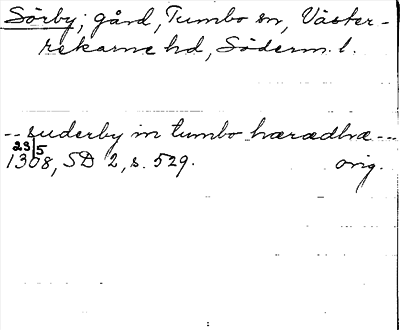 Sörby; gård, Tumbo sn, Väster-
rekarne hd, Söderm. l.
-- suderby in tumbo hæræthæ --
23/5
1308, SD 2, s. 529. orig.